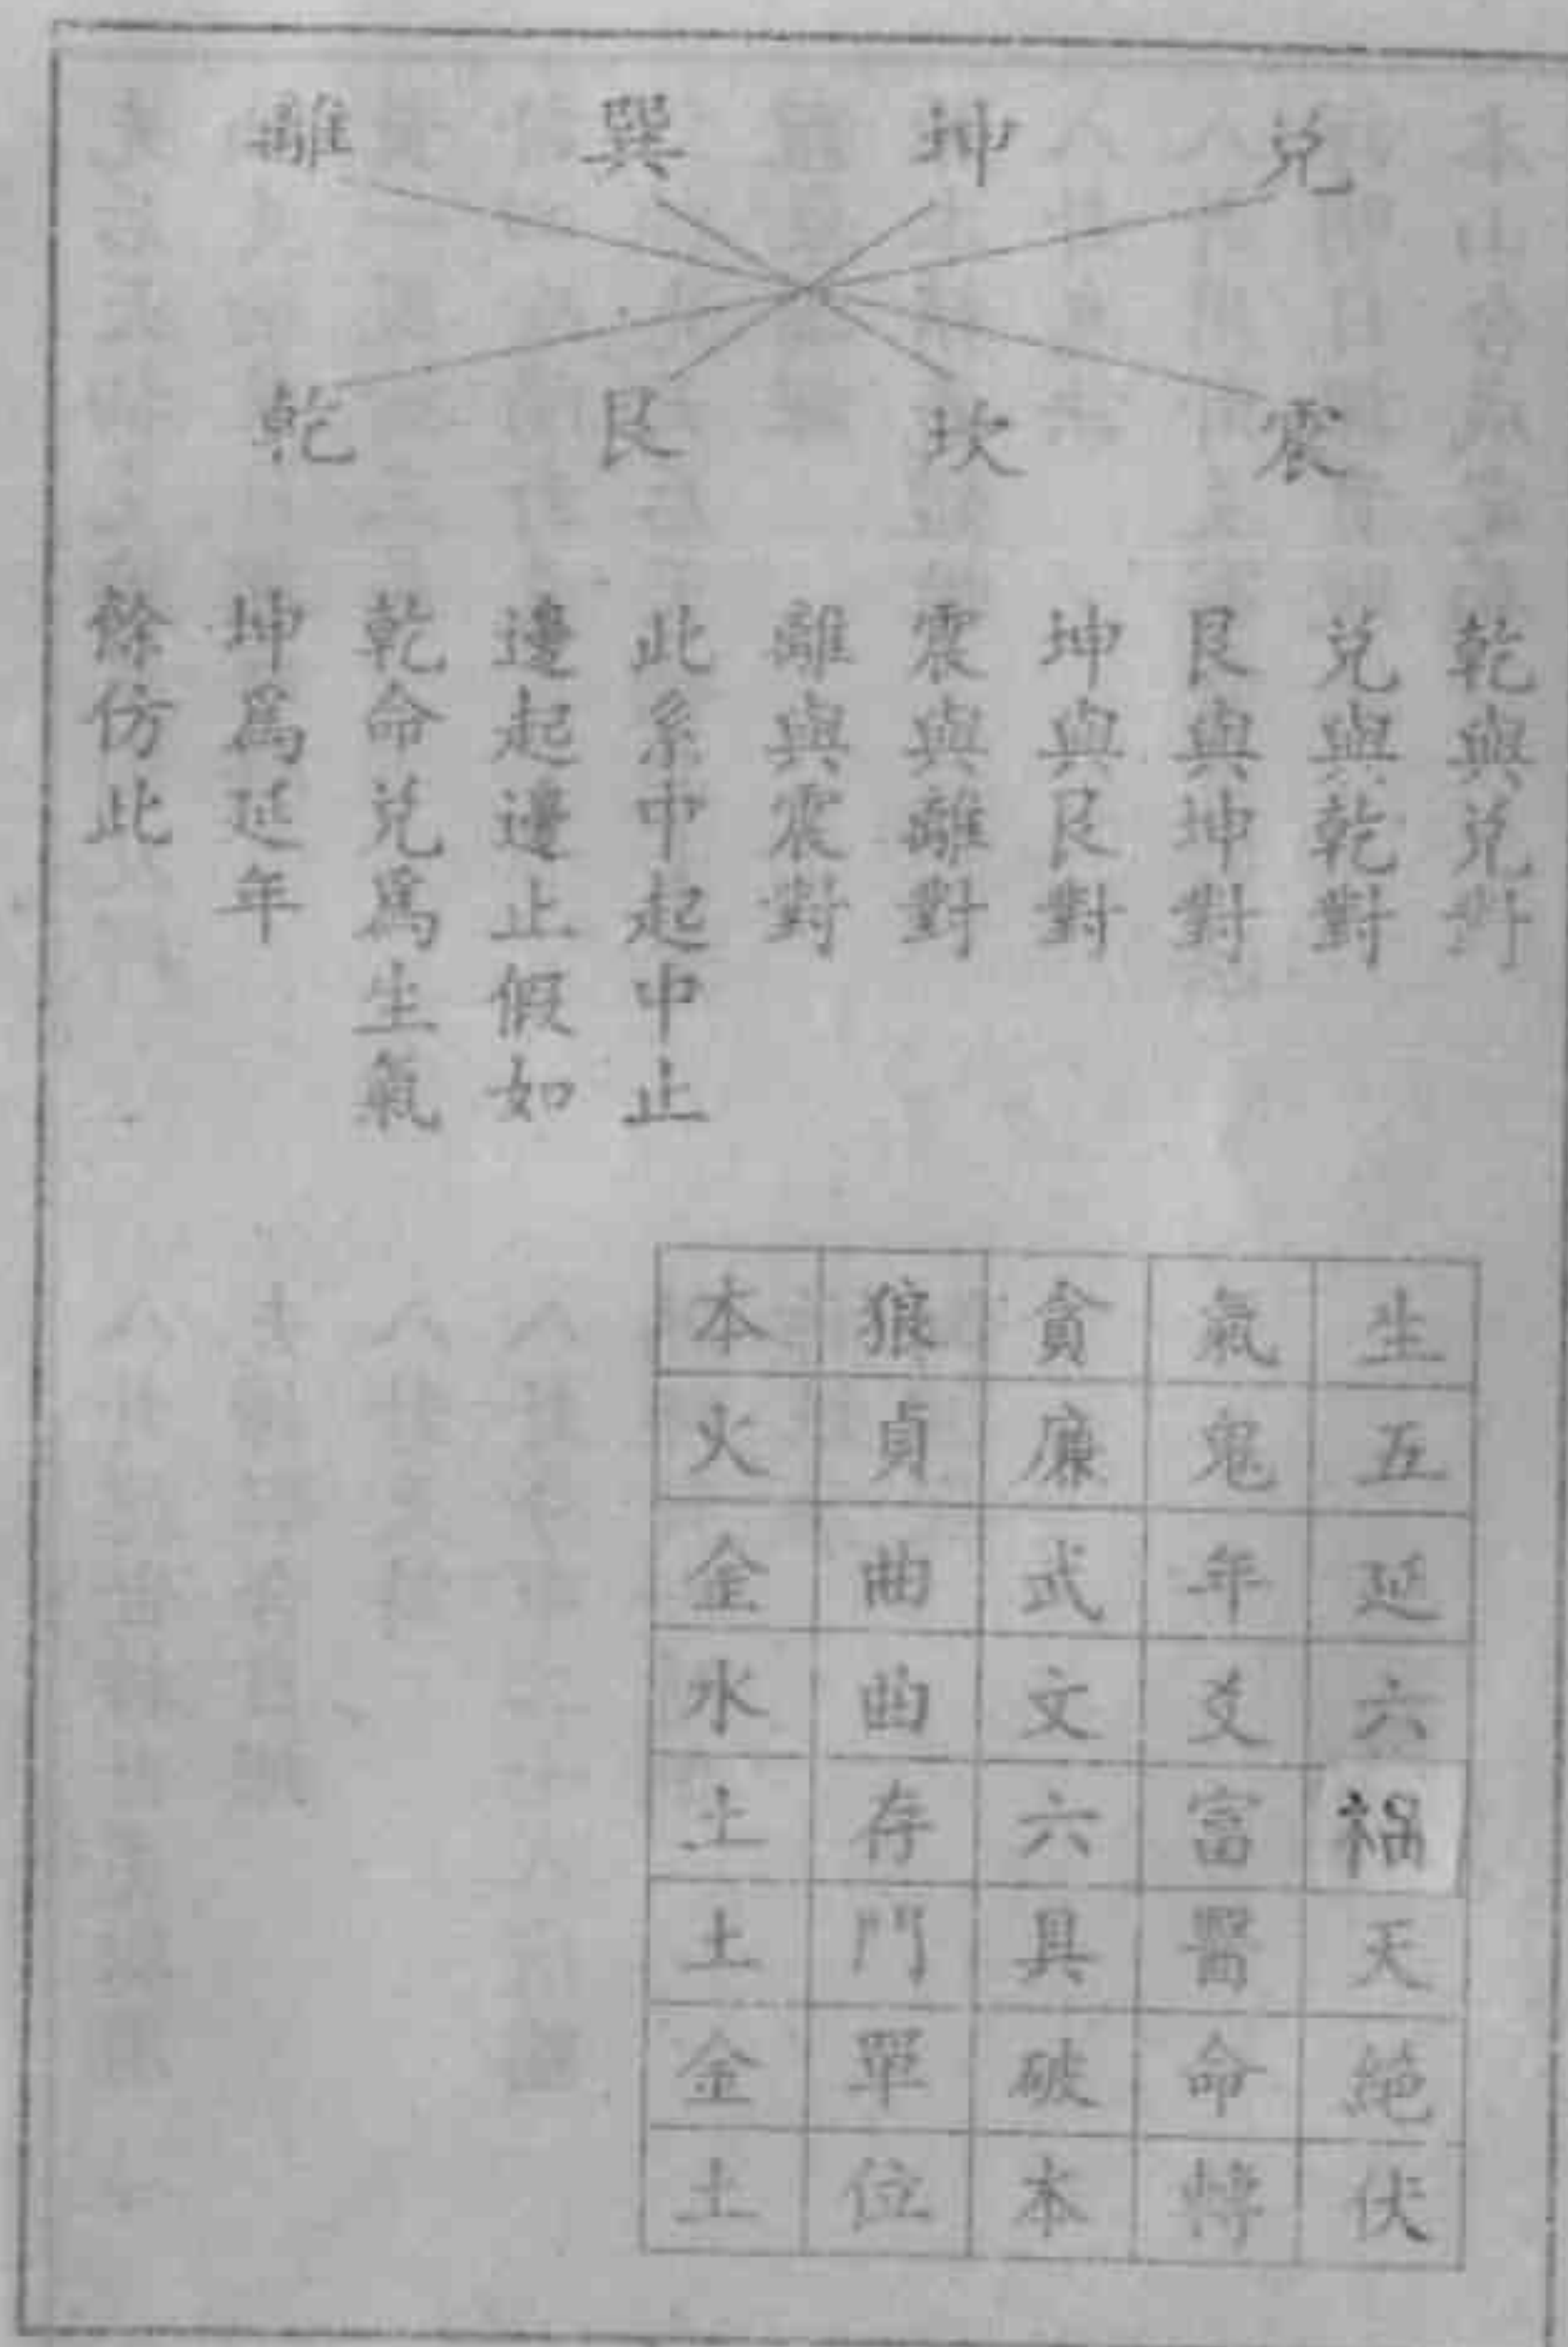 兌 坤 巽 離
震 坎 艮 乾
乾與兌對
兌與乾對
艮與坤對
坤與艮對
震與離對
離與震對
此系中起中止
邊起邊止假如
乾命兌爲生氣
坤爲延年
餘仿此
生氣貪狼本
五鬼廉貞火
延年武曲金
六爻文曲水
禍富六存土
天醫具門土
絕命破單金
伏轉本位土